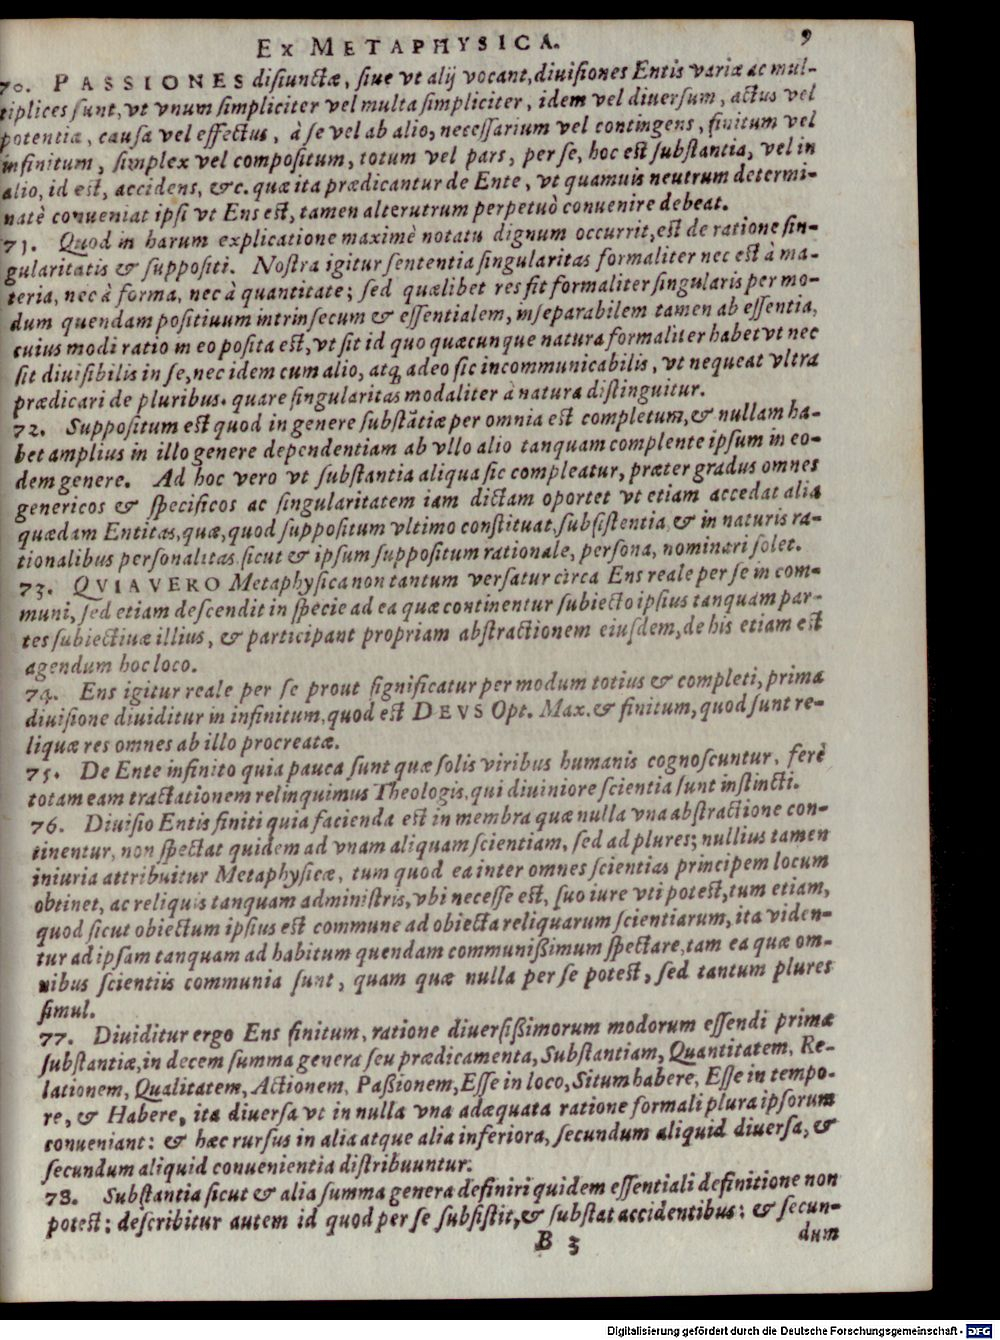 EX METAPHYSICA. 9
70. PASSIONES disiunctæ, siue vt alij vocant, diuisiones Entis variæ ac mul-
tiplices sunt, vt vnum simpliciter vel multa simpliciter, idem vel diuersum, actus vel
potentia, causa vel effectus, à se vel ab alio, necessarium vel contingens, finitum vel
infinitum, simplex vel compositum, totum vel pars, per se, hoc est substantia, vel in
alio, id est, accidens, &c. quæ ita prædicantur de Ente, vt quamuis neutrum determi-
natè conueniat ipsi vt Ens est, tamen alterutrum perpetuò conuenire debeat.
71. Quod in harum explicatione maximè notatu dignum occurrit, est de ratione sin-
gularitatis & suppositi. Nostra igitur sententia singularitas formaliter nec est à ma-
teria, nec à forma, nec à quantitate; sed quælibet res fit formaliter singularis per mo-
dum quendam positiuum intrinsecum & essentialem, inseparabilem tamen ab essentia,
cuius modi ratio in eo posita est, vt sit id quo quæcunque natura formaliter habet vt nec
sit diuisibilis in se, nec idem cum alio, atq, adeo sic incommunicabilis, vt nequeat vltra
prædicari de pluribus. quare singularitas modaliter à natura distinguitur.
72. Suppositum est quod in genere substãtiæ per omnia est completum, & nullam ha-
bet amplius in illo genere dependentiam ab vllo alio tanquam complente ipsum in eo-
dem genere. Ad hoc vero vt substantia aliqua sic compleatur, præter gradus omnes
genericos & specificos ac singularitatem iam dictam oportet vt etiam accedat alia
quædam Entitas, quæ, quod suppositum vltimo constituat, subsistentia, & in naturis ra-
tionalibus personalitas sicut & ipsum suppositum rationale, persona, nominari solet.
73. QVIA VERO Metaphysica non tantum versatur circa Ens reale per se in com-
muni, sed etiam descendit in specie ad ea quæ continentur subiecto ipsius tanquam par-
tes subiectiuæ illius, & participant propriam abstractionem eiusdem, de his etiam est
agendum hoc loco.
74. Ens igitur reale per se prout significatur per modum totius & completi, prima
diuisione diuiditur in infinitum, quod est DEVS Opt. Max. & finitum, quod sunt re-
liquæ res omnes ab illo procreatæ.
75. De Ente infinito quia pauca sunt quæ solis viribus humanis cognoscuntur, ferè
totam eam tractationem relinquimus Theologis, qui diuiniore scientia sunt instincti.
76. Diuisio Entis finiti quia facienda est in membra quæ nulla vna abstractione con-
tinentur, non spectat quidem ad vnam aliquam scientiam, sed ad plures; nullius tamen
iniuria attribuitur Metaphysicæ, tum quod ea inter omnes scientias principem locum
obtinet, ac reliquis tanquam administris, vbi necesse est, suo iure vti potest, tum etiam,
quod sicut obiectum ipsius est commune ad obiecta reliquarum scientiarum, ita viden-
tur ad ipsam tanquam ad habitum quendam communißimum spectare, tam ea quæ om-
nibus scientiis communia sunt, quam quæ nulla per se potest, sed tantum plures
simul.
77. Diuiditur ergo Ens finitum, ratione diuersißimorum modorum essendi primæ
substantiæ, in decem summa genera seu prædicamenta, Substantiam, Quantitatem, Re-
lationem, Qualitatem, Actionem, Paßionem, Esse in loco, Situm habere, Esse in tempo-
re, & Habere, ita diuersa vt in nulla vna adæquata ratione formali plura ipsorum
conueniant: & hæc rursus in alia atque alia inferiora, secundum aliquid diuersa, &
secundum aliquid conuenientia distribuuntur.
78. Substantia sicut & alia summa genera definiri quidem essentiali definitione non
potest; describitur autem id quod per se subsistit, & substat accidentibus: & secun-
B 3 dum
Digitalisierung gefördert durch die Deutsche Forschungsgemeinschaft - DFG